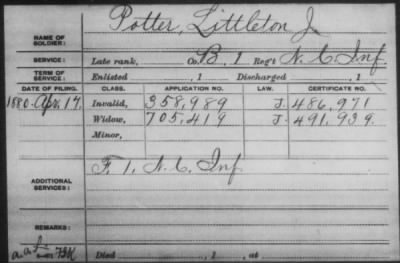 Potter, Littleton J.
NAME OF SOLDIER:
SERVICE: Late rank, Co. B, 1 Reg't N. C. Inf
TERM OF SERVICE: Enlisted , 1 Discharged , 1
DATE OF FILING. CLASS. APPLICATION NO. LAW. CERTIFICATE NO.
1880 Apr. 17. Invalid, 358,989 J. 486,971
Widow, 705,419 J. 491,939.
Minor,
ADDITIONAL SERVICES: F. 1, N. C. Inf
REMARKS:
Died , 1 , at